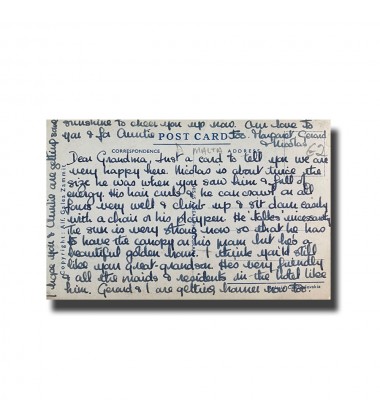 sunshine to cheer you up now. Our love to
you & for Auntie too. Margaret, Gerard
& Nicolas
POST CARD
CORRESPONDENCE
MALTA
ADDRESS
€2
Dear Grandma, Just a card to tell you we are
very happy here. Nicolas is about twice the
size he was when you saw him & full of
energy. His hair curls & he can crawl on all
fours very well & climb up & sit down easily
with a chair or his playpen. He 'talks' incessantly
The sun is very strong now so that he has
to have the canopy on his pram but he's a
beautiful golden brown. I think you'd still
like your great-grandson. He's very friendly
to all the maids & residents in the hotel like
him. Gerard & I are getting browner now too.
I hope you & Auntie are getting some
Copyright: Alf. Galea Zammit